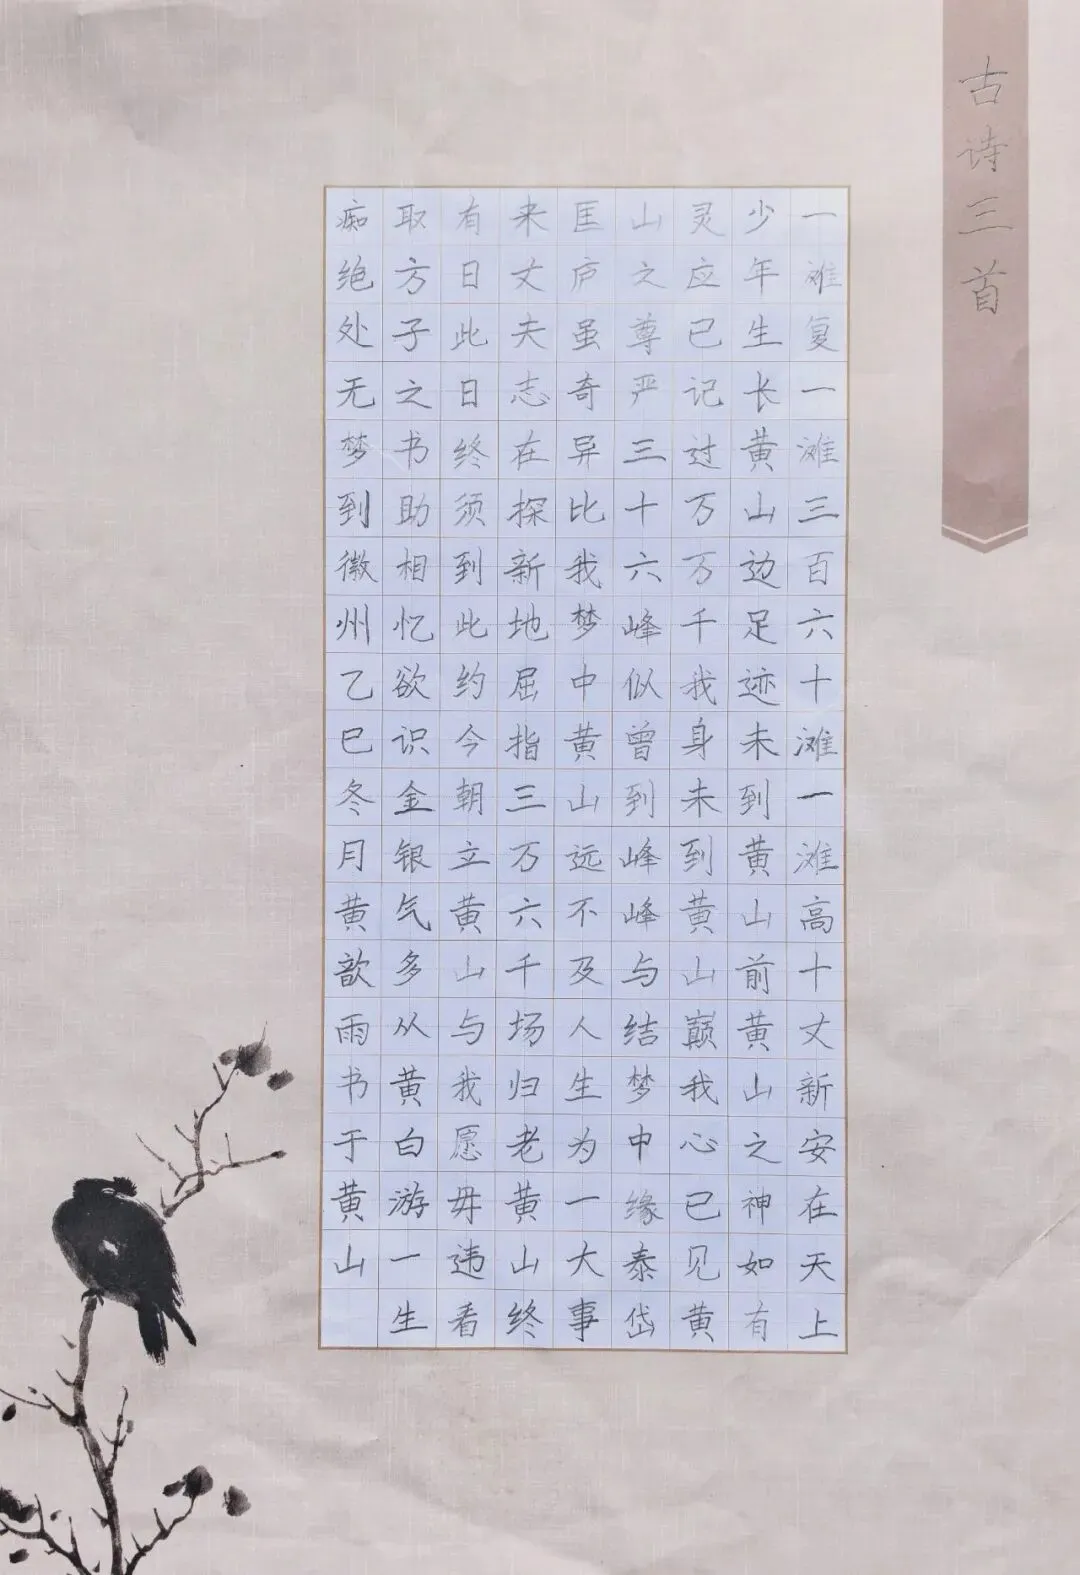 古诗三首
一滩复一滩三百六十滩一滩高十丈新安在天上
少年生长黄山边足迹未到黄山前黄山之神如有
灵应已记过万万千我身未到黄山巅我心已见黄
山之尊严三十六峰似曾到峰峰与结梦中缘泰岱
匡庐虽奇异比我梦中黄山远不及人生为一大事
来丈夫志在探新地屈指三万六千场归老黄山终
有日此日终须到此约今朝立黄山与我愿毋违看
取方子之书助相忆欲识金银气多从黄白游一生
痴绝处无梦到徽州乙巳冬月黄歆雨书于黄山